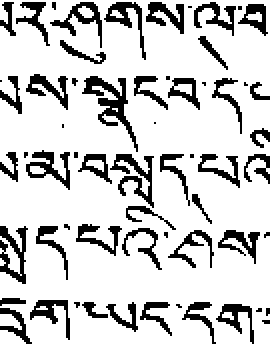 ར་ཤུགས་ལ་བ
པས་སྣང་བ་ད
ས་མ་བསླད་པའི
སླད་པའི་ཤེས
དྲག་ཡང་དག་